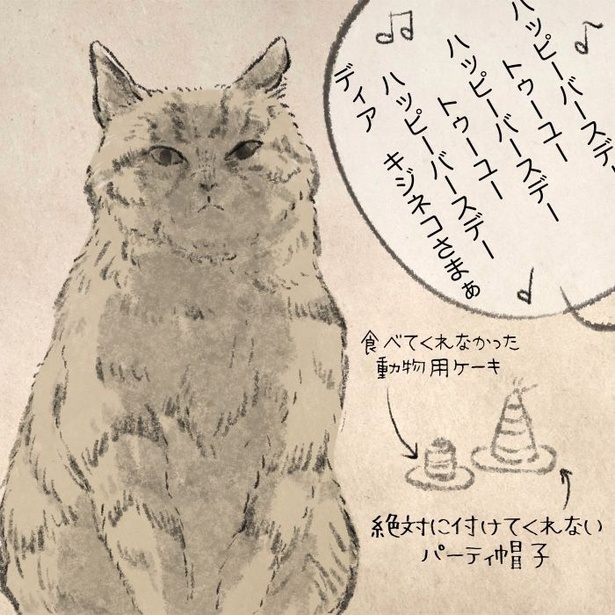 ハッピーバースデー
トゥーユー
ハッピーバースデー
トゥーユー
ハッピーバースデー
ディア
キジネコさまぁ
食べてくれなかった
動物用ケーキ
絶対に付けてくれない
パーティ帽子